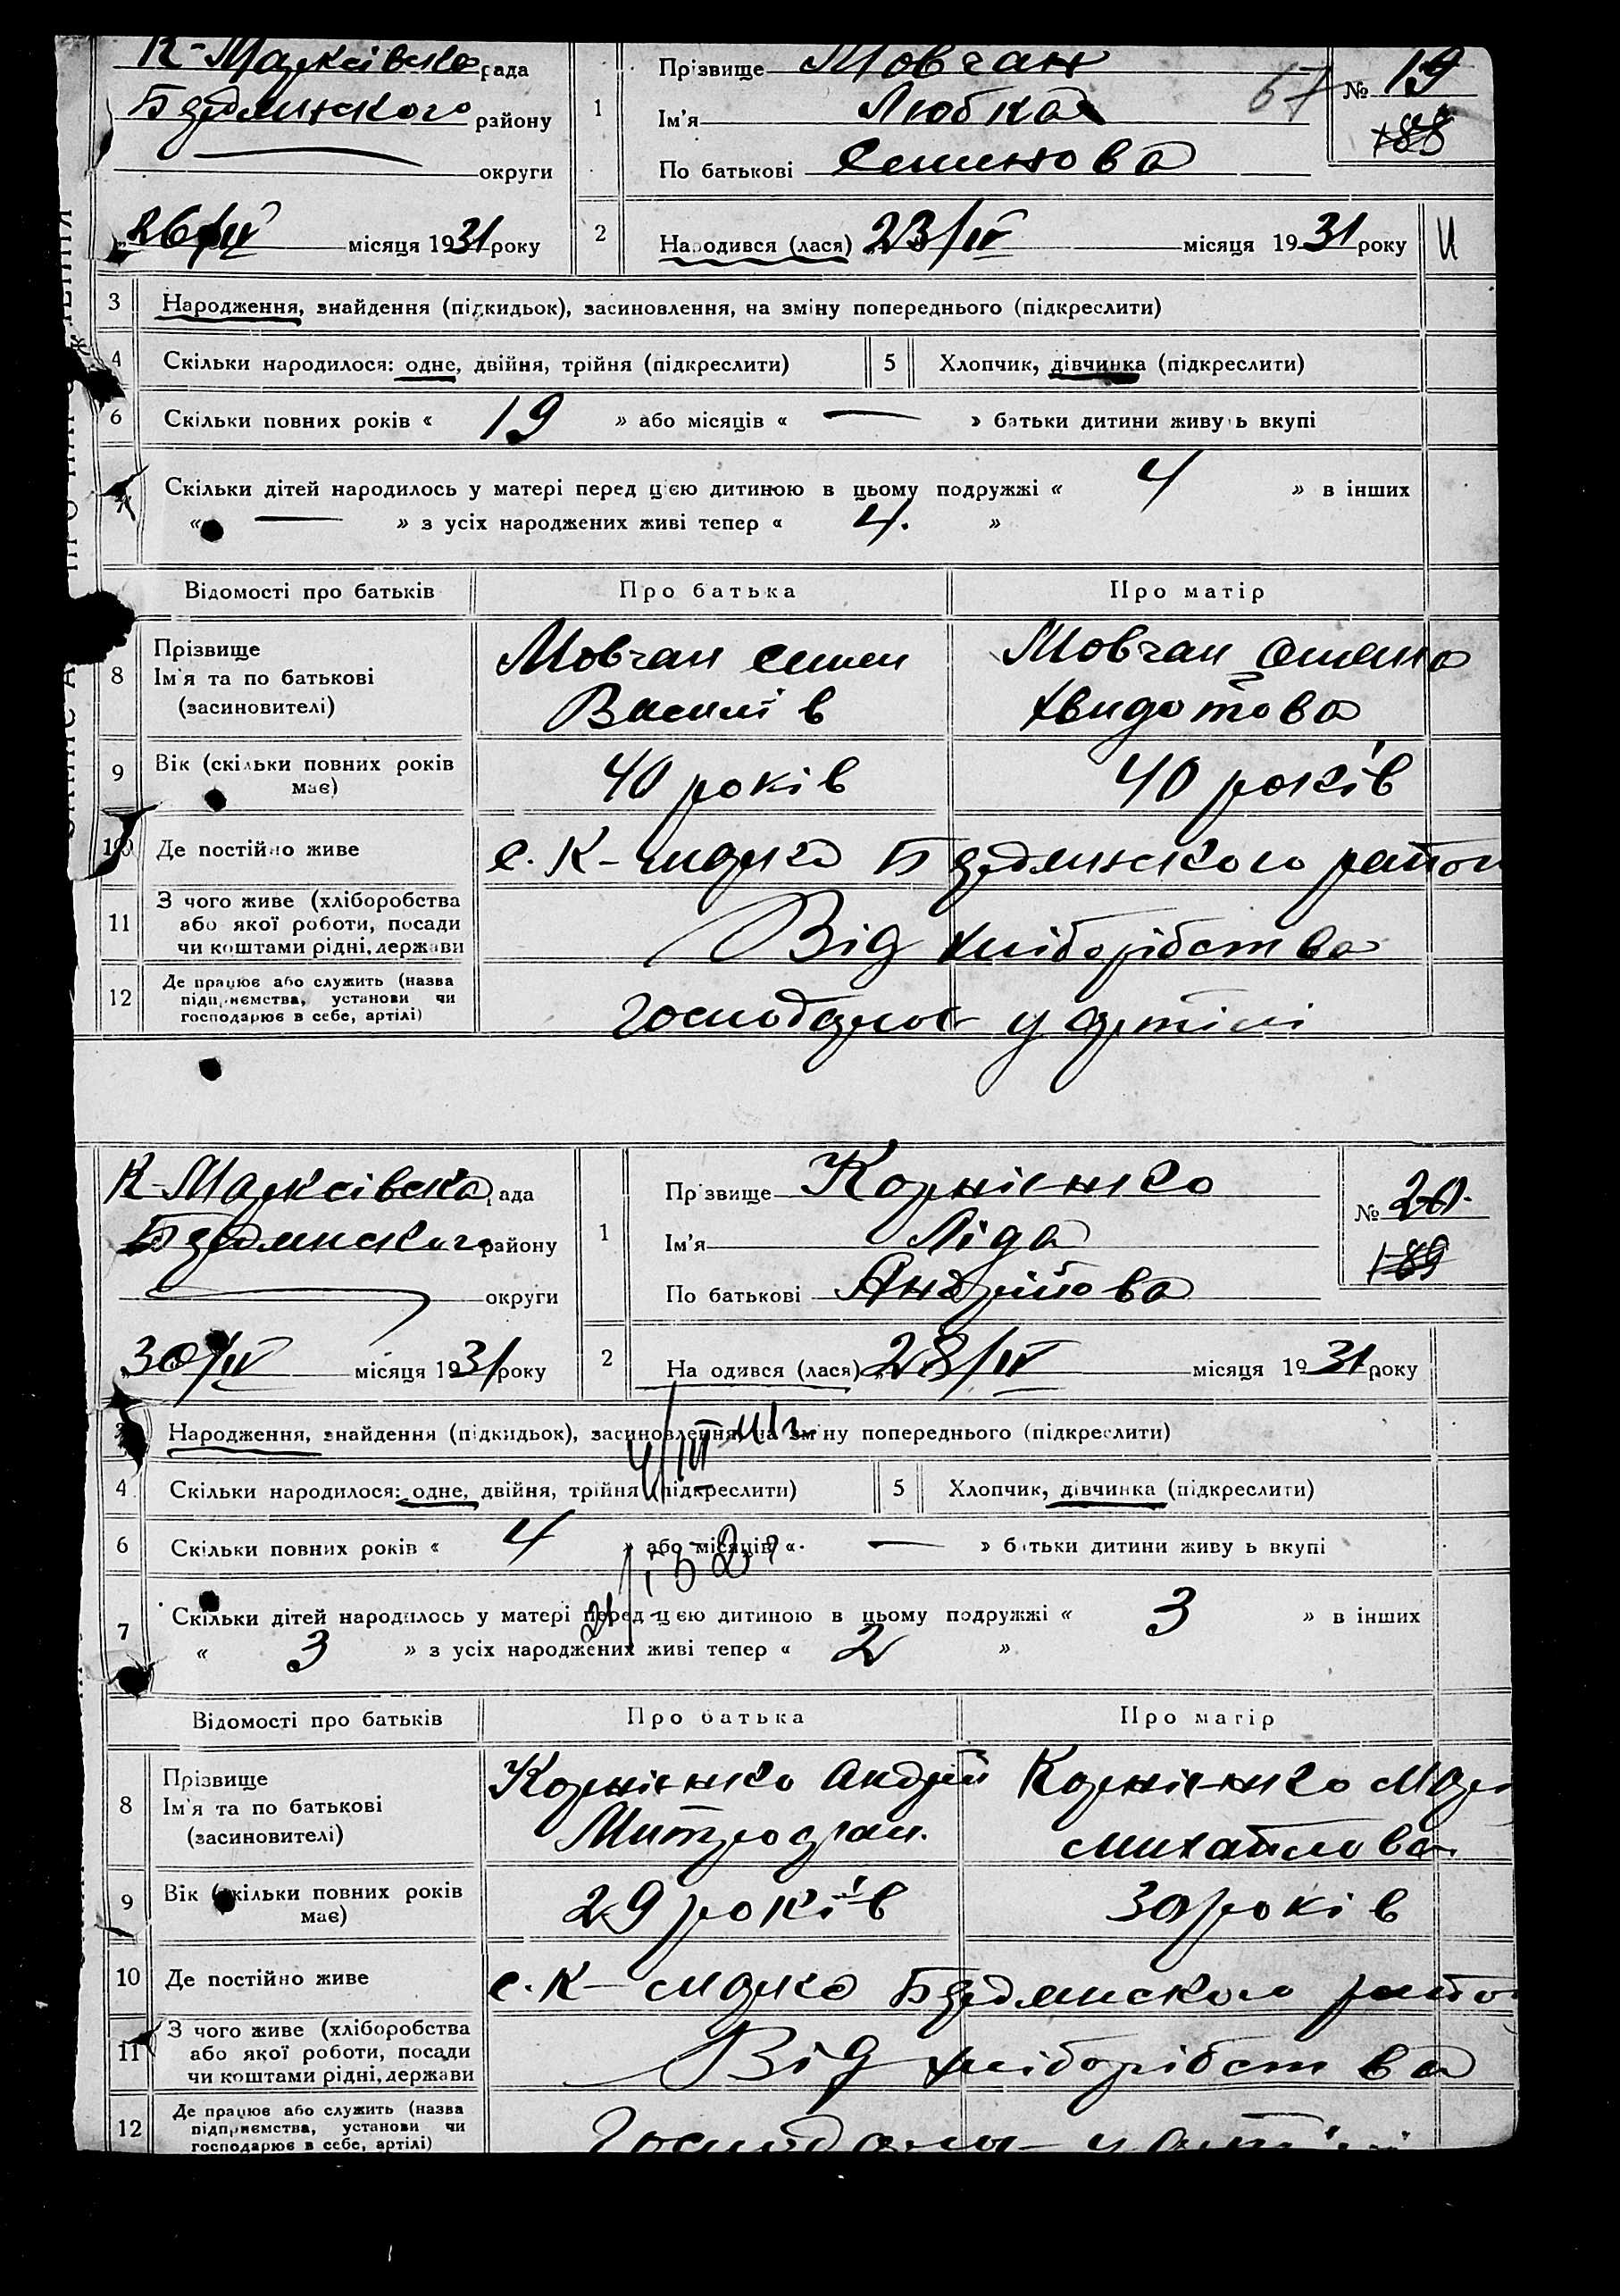 К-Марксівська рада
Бердянського району
округи
26/IV місяця 1931 року
1
Прізвище Мовчан
Ім'я Любка
По батькові Семенова
67
№ 19
188
2
Народився (лася) 23/IV місяця 1931 року
3 Народження, знайдення (підкидьок), засиновлення, на зміну попереднього (підкреслити)
4 Скільки народилося: одне, двійня, трійня (підкреслити) 5 Хлопчик, дівчинка (підкреслити)
6 Скільки повних років « 19 » або місяців « — » батьки дитини живуть вкупі
7 Скільки дітей народилось у матері перед цією дитиною в цьому подружжі « 4 » в інших
« — » з усіх народжених живі тепер « 4. »
Відомості про батьків Про батька Про матір
8 Прізвище
Ім'я та по батькові
(засиновителі)
Мовчан Семен
Василів
Мовчан
Хвидотова
9 Вік (скільки повних років
має)
40 років 40 років
10 Де постійно живе
с. К-Маркс Бердянського район
11 З чого живе (хліборобства
або якої роботи, посади
чи коштами рідні, держави
Від хліборібства
12 Де працює або служить (назва
підприємства, установи чи
господарює в себе, артілі)
Господарює у артілі
К-Марксівська рада
Бердянського району
округи
30/IV місяця 1931 року
1
Прізвище Корнієнко
Ім'я Ліда
По батькові Андрійова
№ 20.
189
2
Народився (лася) 28/IV місяця 1931 року
3 Народження, знайдення (підкидьок), засиновлення, на зміну попереднього (підкреслити)
4 Скільки народилося: одне, двійня, трійня (підкреслити) 5 Хлопчик, дівчинка (підкреслити)
6 Скільки повних років « 4 » або місяців « — » батьки дитини живуть вкупі
7 Скільки дітей народилось у матері перед цією дитиною в цьому подружжі « 3 » в інших
« 3 » з усіх народжених живі тепер « 2 »
Відомості про батьків Про батька Про матір
8 Прізвище
Ім'я та по батькові
(засиновителі)
Корнієнко Андрій
Митрофан.
Корнієнко Мар
Михайлова
9 Вік (скільки повних років
має)
29 років 30 років
10 Де постійно живе
с. К-Маркс Бердянського райо
11 З чого живе (хліборобства
або якої роботи, посади
чи коштами рідні, держави
Від хліборібства
12 Де працює або служить (назва
підприємства, установи чи
господарює в себе, артілі)
Господарює у артілі